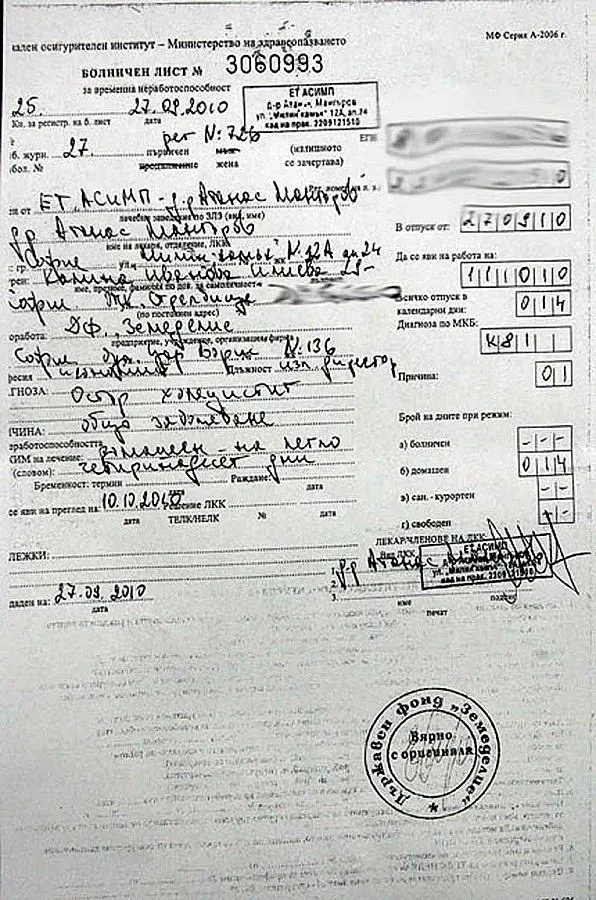 ален осигурителен институт – Министерство на здравеопазването
МФ Серия А-2006 г.
БОЛНИЧЕН ЛИСТ № 3060993
за временна неработоспособност
25. 27.09.2010
Кн. за регистр. на б. лист дата
ЕТ АСИМП
д-р Атанас Мангъров
ул. "Милин камък" 12А, ап.24
код на прак. 2209121510
рег N: 726
ЕГН
б. журн. 27. първичен мъж (излишното
бол. № продължение жена се зачертава)
от ЕТ "АСИМП - д-р Атанас Мангъров
лечебно заведение по ЗЛЗ (вид, име)
д-р Атанас Мангъров
име на лекаря, отделение, ЛКК
В отпуск от: 270910
гр. София ул. Милин камък" N: 12А ап. 24
Да се яви на работа на:
Калина Иванова Илиева
име, презиме, фамилия по док. за самоличност
111010
София жк. Стрелбище
(по постоянен адрес)
Всичко отпуск в
календарни дни: 014
оработа: ДФ "Земеделие
предприятие, учреждение, организация фирма
Диагноза по МКБ:
K81
София бул. Цар Борис N: 136
ресия икономист Длъжност изп директор
Причина: 01
ГНОЗА: Остър холецистит
ЧИНА: общо заболяване
Брой на дните при режим:
работоспособността
ИМ на лечение: домашен - на легло
а) болничен - - -
(словом): четиринадесет дни
б) домашен 014
Бременност: термин Раждане: дата
в) сан.- курортен - -
се яви на преглед на: 10.10.2010 Решение ЛКК
дата ТЕЛК/НЕЛК № дата
г) свободен - -
ЛЕЖКИ:
ЛЕКАР/ЧЛЕНОВЕ НА ЛКК
1. д-р Атанас
ЕТ АСИМП
д-р Атанас Мангъров
ул. "Милин камък"
код на прак. 2209121510
2.
3.
даден на: 27.09.2010
дата
име подпис
печат
Държавен фонд „Земеделие“
Вярно
с оригинала